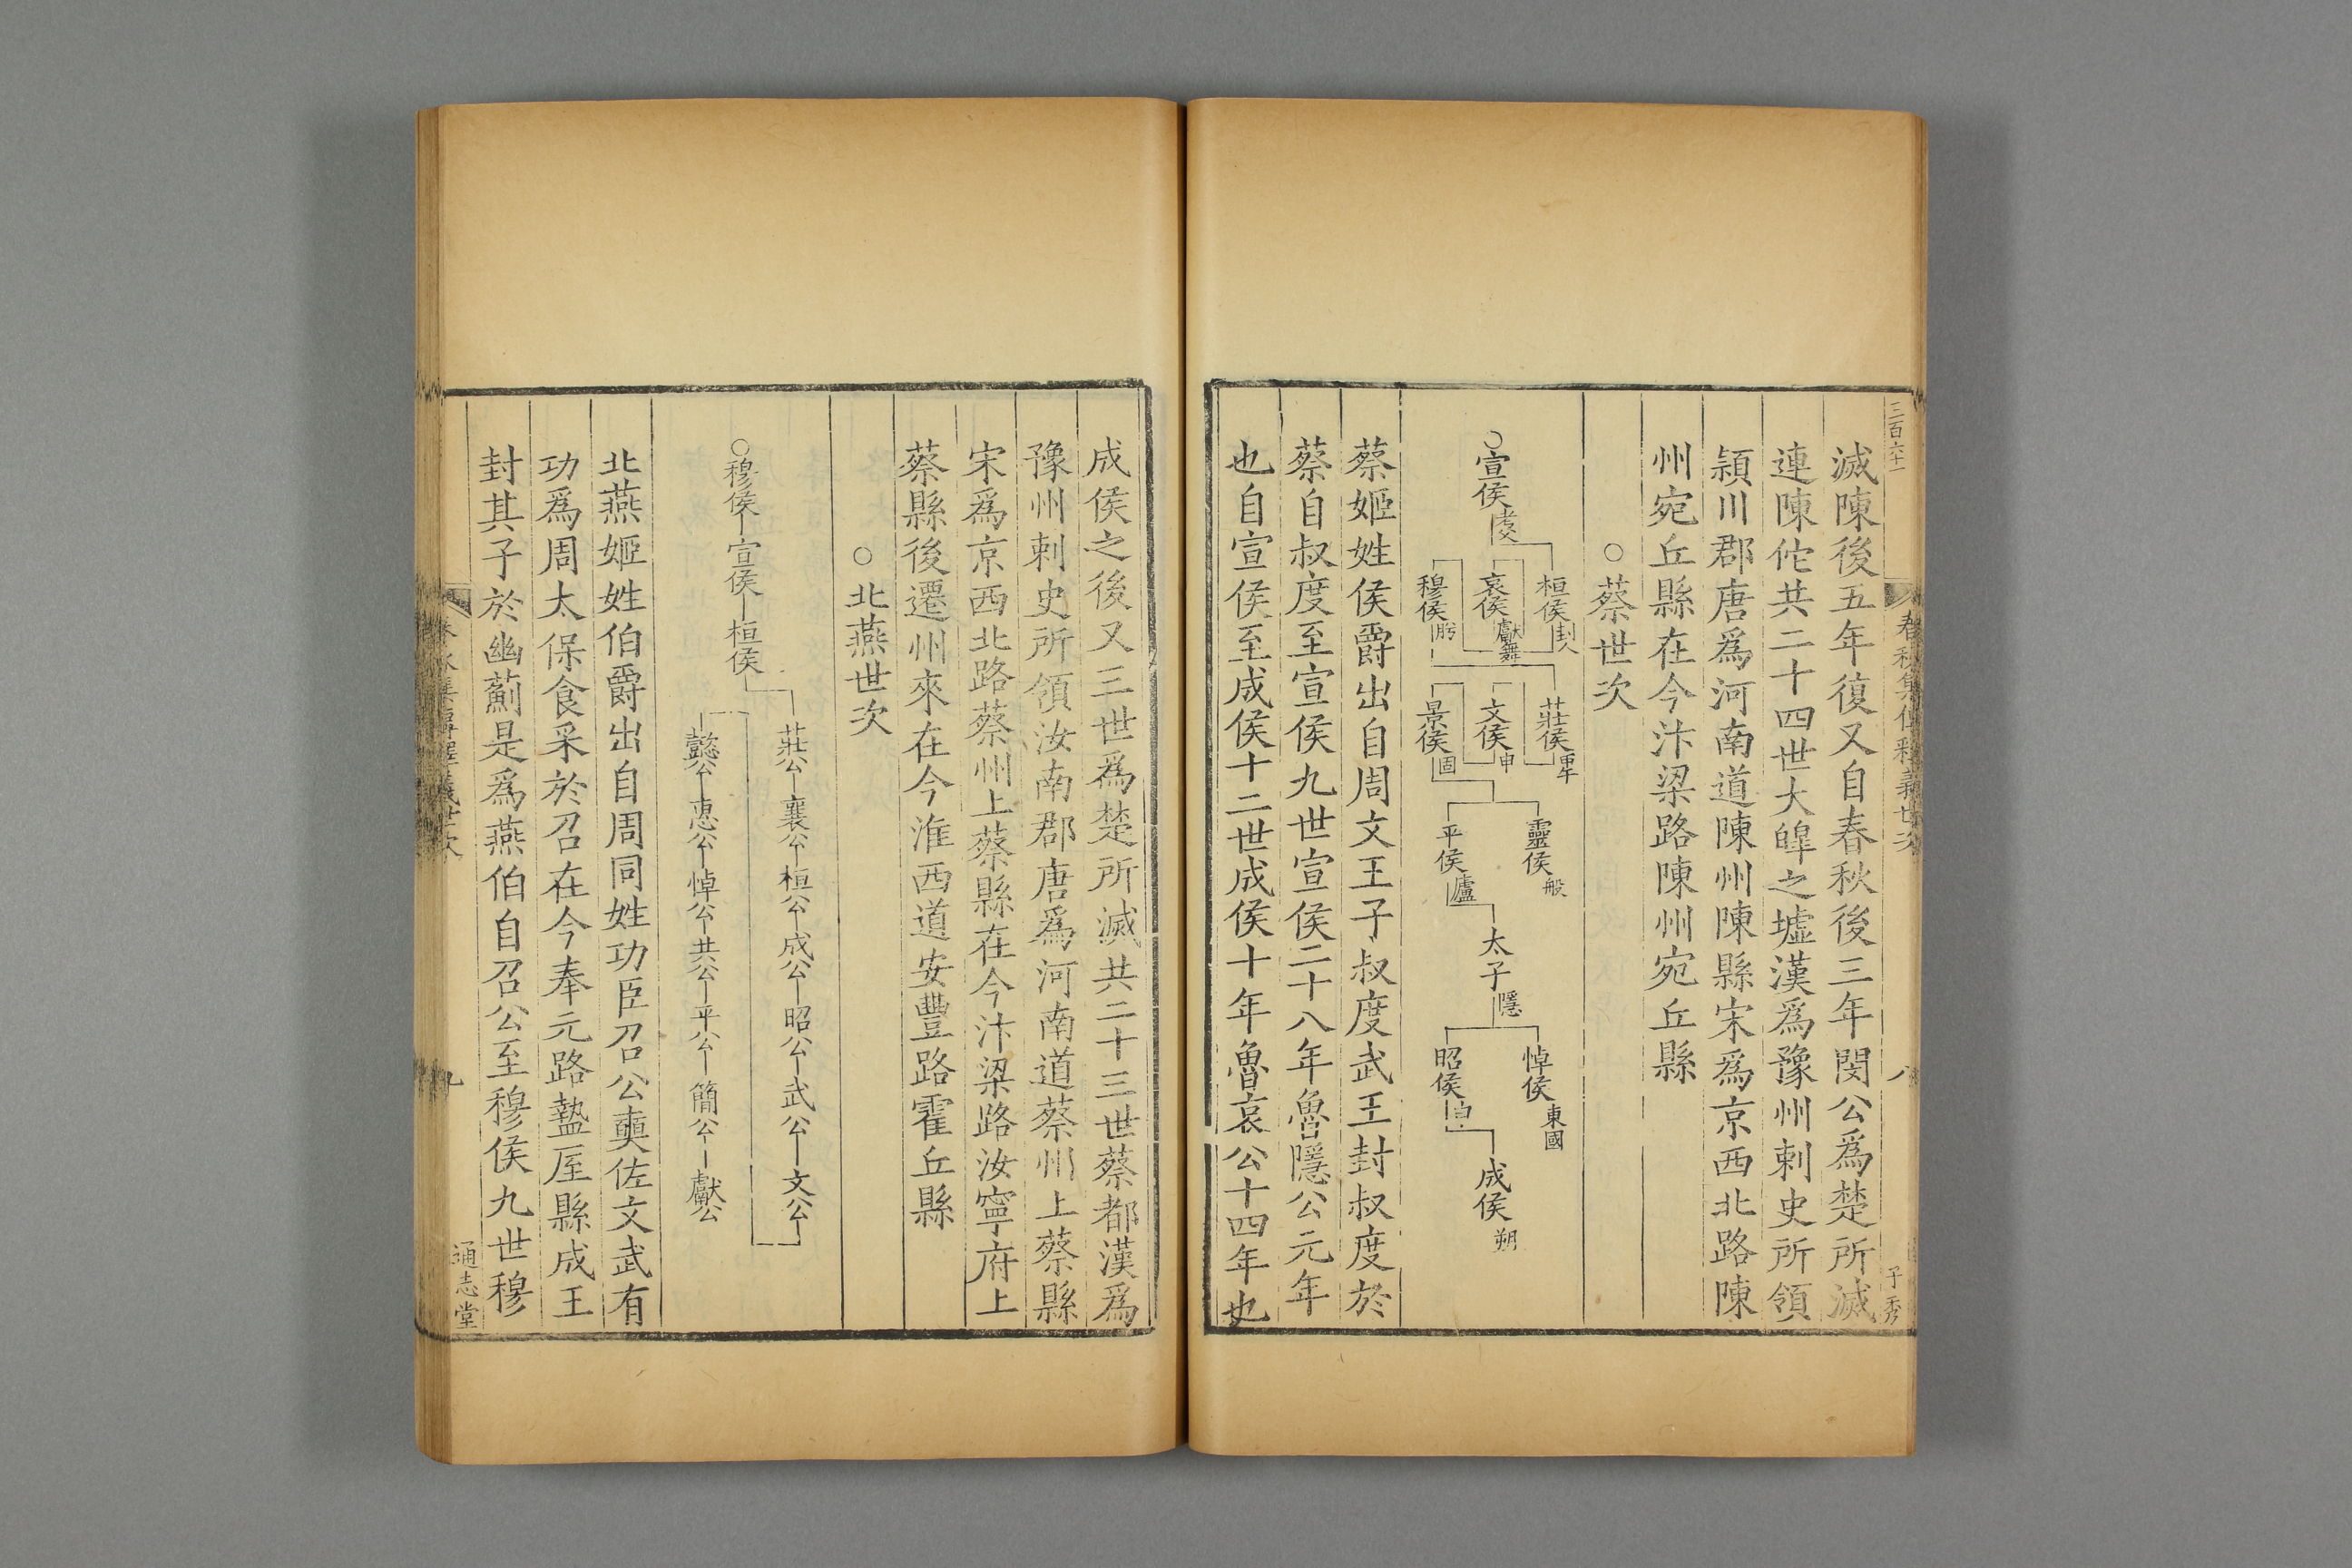 三百六十一
春秋集傳釋義世次
八
子秀
滅陳後五年復又自春秋後三年閔公為楚所滅
連陳佗共二十四世大皡之墟漢為豫州刺史所領
潁川郡唐為河南道陳州陳縣宋為京西北路陳
州宛丘縣在今汴梁路陳州宛丘縣
○蔡世次
○宣侯
桓侯封人
哀侯獻舞
穆侯肹
莊侯甲午
文侯申
景侯固
靈侯般
平侯廬
太子隱
悼侯東國
昭侯
成侯朔
蔡姬姓侯爵出自周文王子叔度武王封叔度於
蔡自叔度至宣侯九世宣侯二十八年魯隱公元年
也自宣侯至成侯十二世成侯十年魯哀公十四年也
成侯之後又三世為楚所滅共二十三世蔡都漢為
豫州刺史所領汝南郡唐為河南道蔡州上蔡縣
宋為京西北路蔡州上蔡縣在今汴梁路汝寧府上
蔡縣後遷州來在今淮西道安豐路霍丘縣
○北燕世次
○穆侯宣侯桓侯
莊公襄公桓公成公昭公武公文公
懿公惠公悼公共公平公簡公獻公
北燕姬姓伯爵出自周同姓功臣召公奭佐文武有
功為周太保食采於召在今奉元路盩厔縣成王
封其子於幽薊是為燕伯自召公至穆侯九世穆
九
通志堂